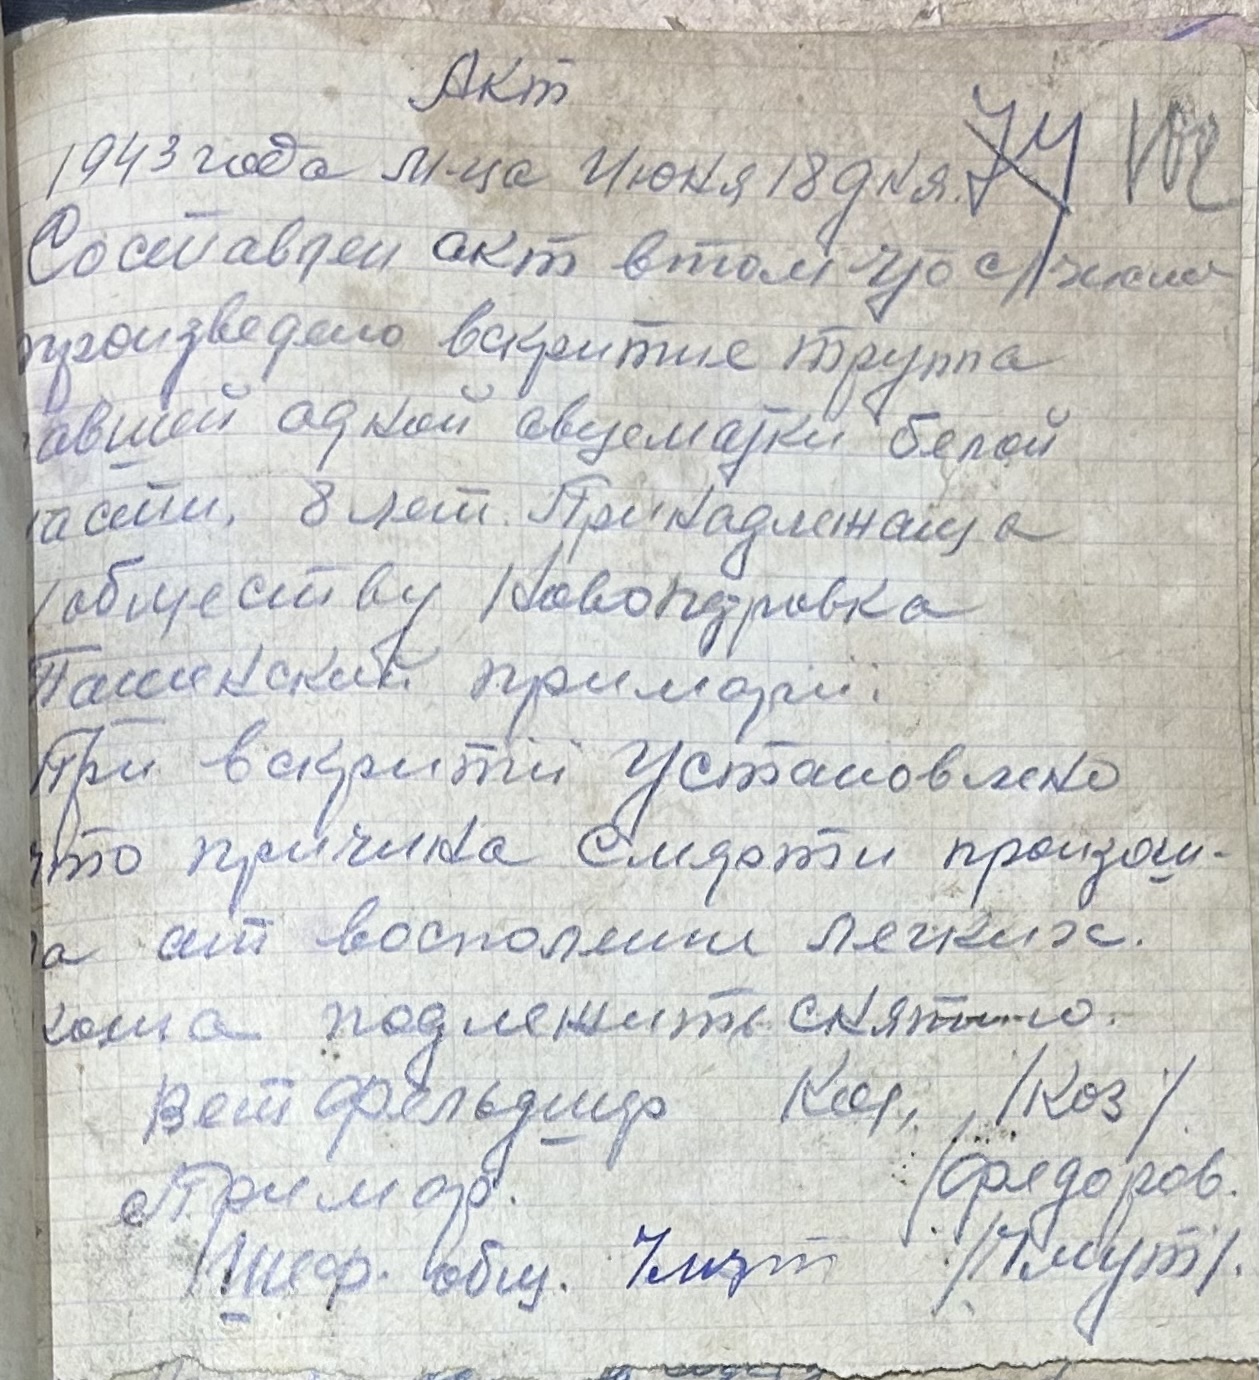 Акт
1943 года М-ца Июня 18 дня. 74
Составлен акт втом что с/числа
произведено вскритие труппа
павшей одной овцематки белой
масти, 8 лет. Принадлежаща
обществу Новопдровка
Ташенский примарии.
При вскритии Установлено
что причина смерти произош-
ла от восполении легких.
кожа подлежить снятию.
Вет Фельдшер /Коз/
Примар. /Федоров.
Шеф. общ. /Чмут/.